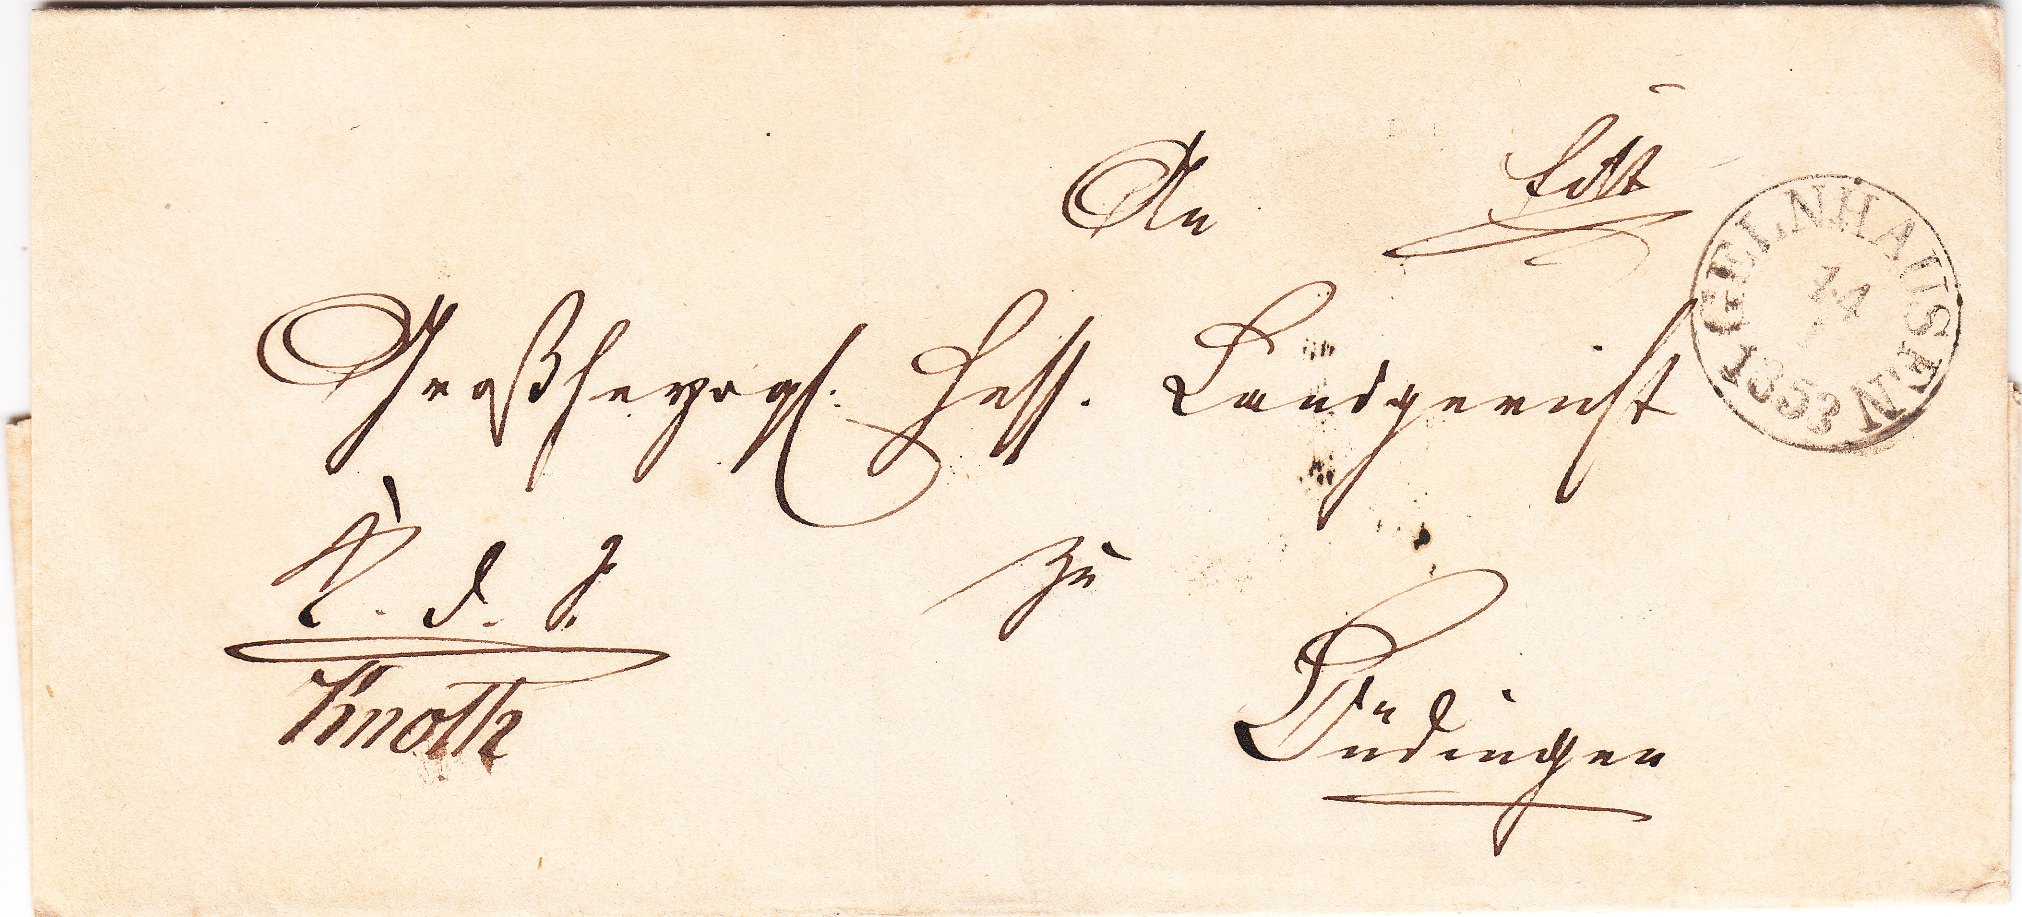 An
Großherzogl. Hess. Landgericht
zu
Büdingen
K. d. J.
Knoth
GELNHAUSEN
14
1853